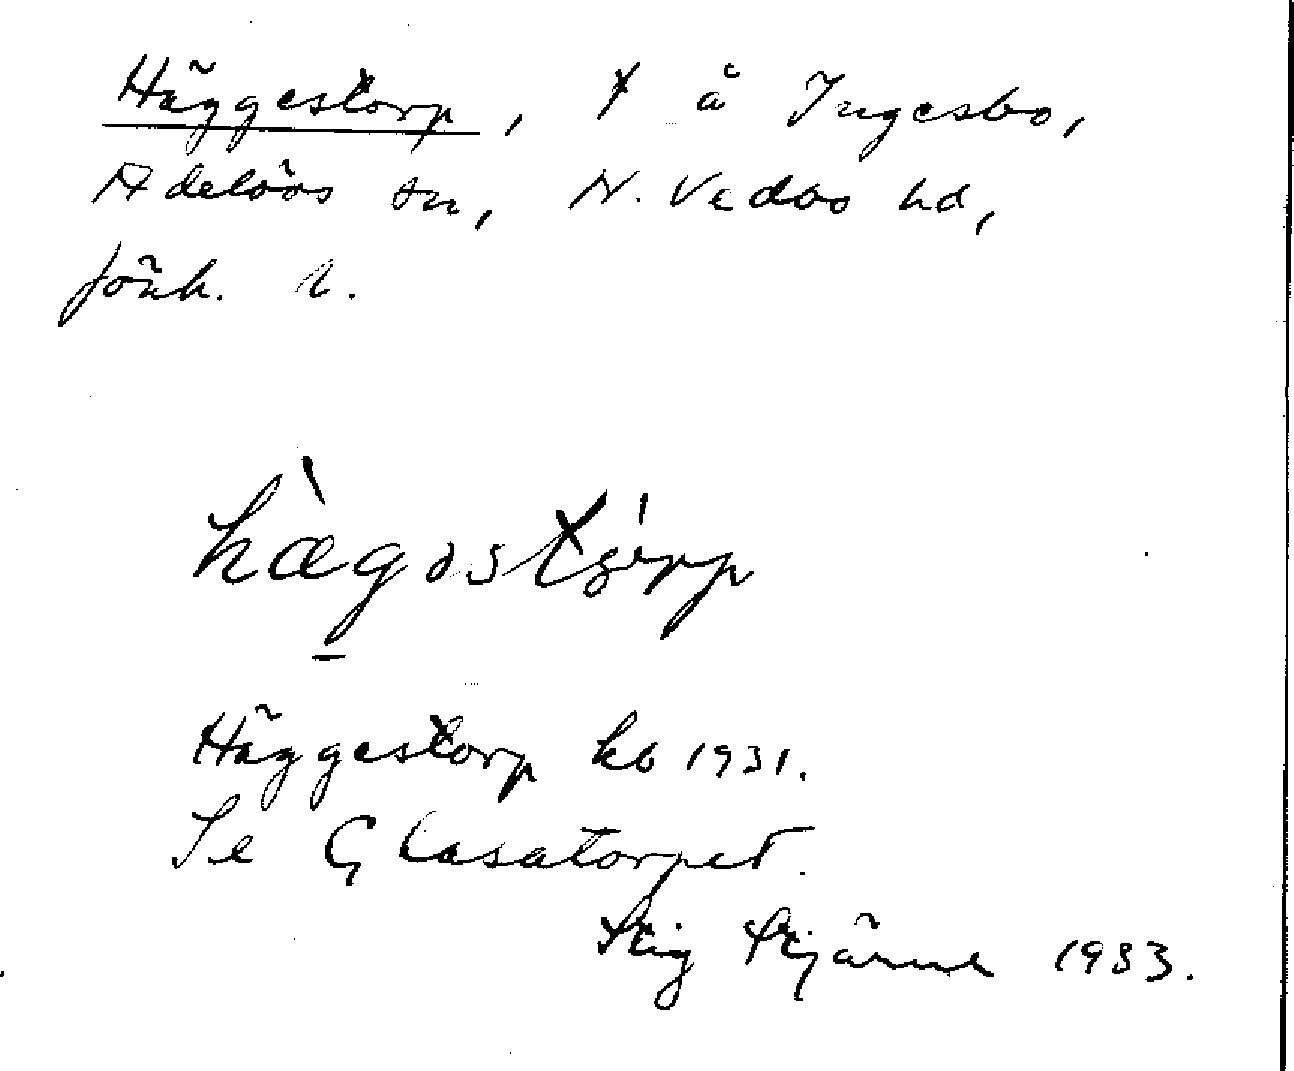 Häggestorp, t å Ingesbo,
Adelövs sn, N. Vedbo hd,
Jönk. l.
Häggestorp kb 1931.
Se Glasatorpet.
Stig Stjärne 1933.